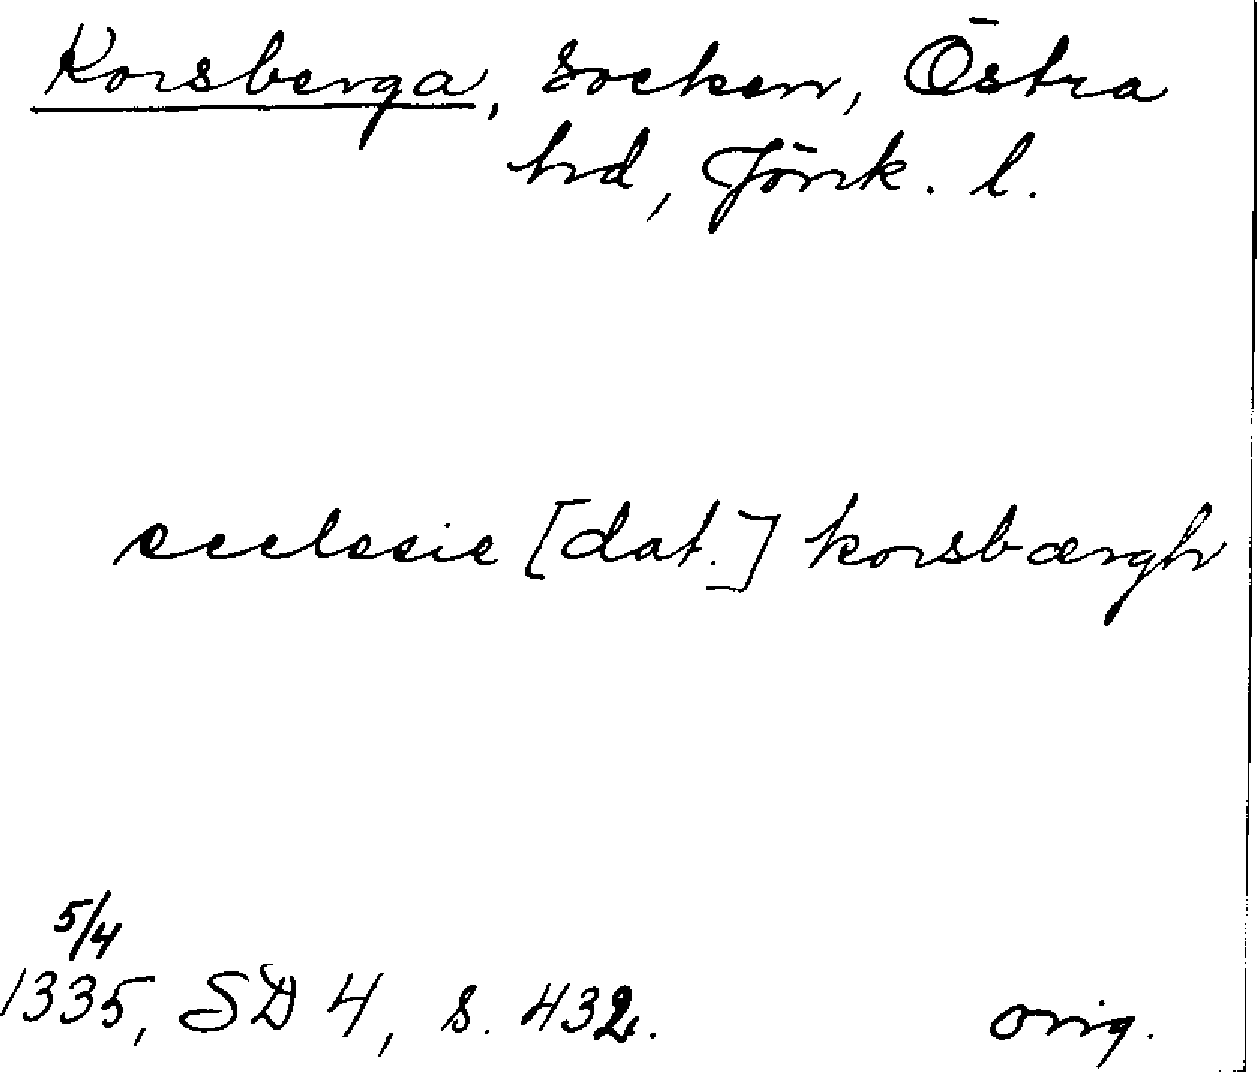 Korsberga, socken, Östra
hd, Jönk. l.
ecclesie [dat.] korsbærgh
5/4
1335, SD 4, s. 432.
orig.